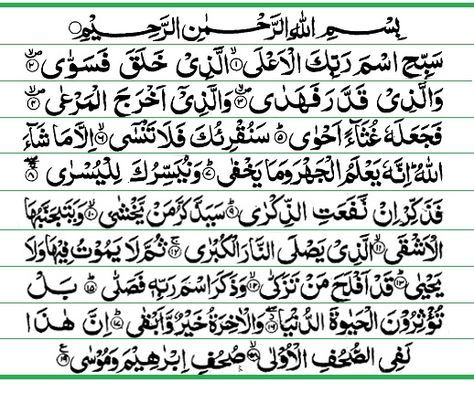 بِسْمِ اللهِ الرَّحْمٰنِ الرَّحِيْمِ ○
سَبِّحِ اسْمَ رَبِّكَ الْاَعْلَى ۙ‏﴿۱﴾ الَّذِىْ خَلَقَ فَسَوّٰى ۙ‏﴿۲﴾
وَالَّذِىْ قَدَّرَ فَهَدٰى ۙ‏﴿۳﴾ وَالَّذِىْٓ اَخْرَجَ الْمَرْعٰى ۙ‏﴿۴﴾
فَجَعَلَهٗ غُثَآءً اَحْوٰى ؕ‏﴿۵﴾ سَنُقْرِئُكَ فَلَا تَنْسٰٓى ۙ‏﴿۶﴾ اِلَّا مَا شَآءَ
اللهُ ؕ اِنَّهٗ يَعْلَمُ الْجَهْرَ وَمَا يَخْفٰى ؕ‏﴿۷﴾ وَنُيَسِّرُكَ لِلْيُسْرٰى ۖۚ‏﴿۸﴾
فَذَكِّرْ اِنْ نَّفَعَتِ الذِّكْرٰى ؕ‏﴿۹﴾ سَيَذَّكَّرُ مَنْ يَّخْشٰى ۙ‏﴿۱۰﴾ وَيَتَجَنَّبُهَا
الْاَشْقَى ۙ‏﴿۱۱﴾ الَّذِىْ يَصْلَى النَّارَ الْكُبْرٰى ۚ‏﴿۱۲﴾ ثُمَّ لَا يَمُوْتُ فِيْهَا وَلَا
يَحْيٰى ؕ‏﴿۱۳﴾ قَدْ اَفْلَحَ مَنْ تَزَكّٰى ۙ‏﴿۱۴﴾ وَذَكَرَ اسْمَ رَبِّهٖ فَصَلّٰى ؕ‏﴿۱۵﴾ بَلْ
تُؤْثِرُوْنَ الْحَيٰوةَ الدُّنْيَا ۖ‏﴿۱۶﴾ وَالْاٰخِرَةُ خَيْرٌ وَّاَبْقٰى ؕ‏﴿۱۷﴾ اِنَّ هٰذَا
لَفِى الصُّحُفِ الْاُوْلٰى ۙ‏﴿۱۸﴾ صُحُفِ اِبْرٰهِيْمَ وَمُوْسٰى ‏﴿۱۹﴾